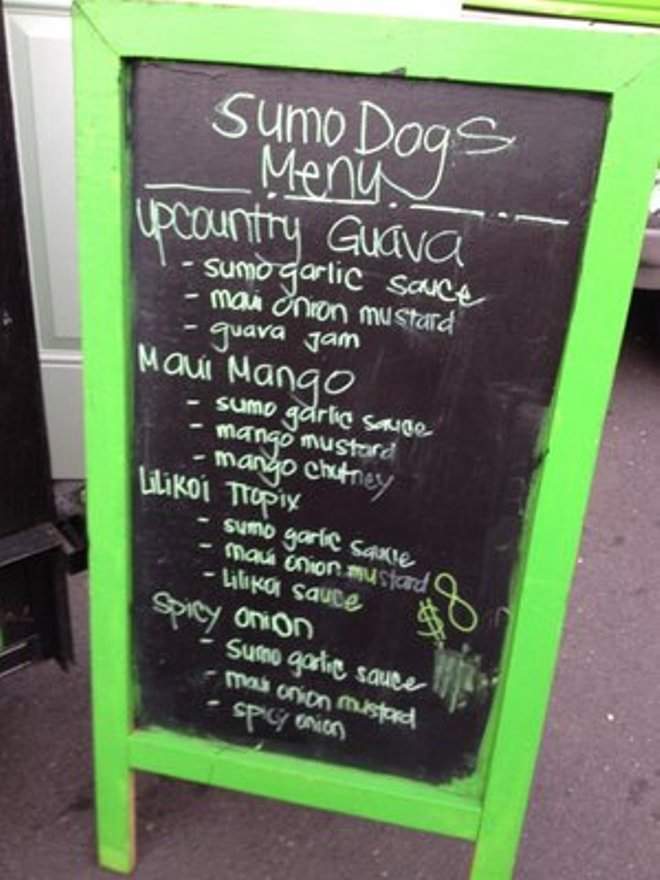 Sumo Dogs
Menu
Upcountry Guava
- sumo garlic sauce
- maui onion mustard
- guava jam
Maui Mango
- sumo garlic sauce
- mango mustard
- mango chutney
Lilikoi Tropix
- sumo garlic sauce
- maui onion mustard
- Lilikoi sauce
$8
Spicy onion
- Sumo garlic sauce
- maui onion mustard
- spicy onion